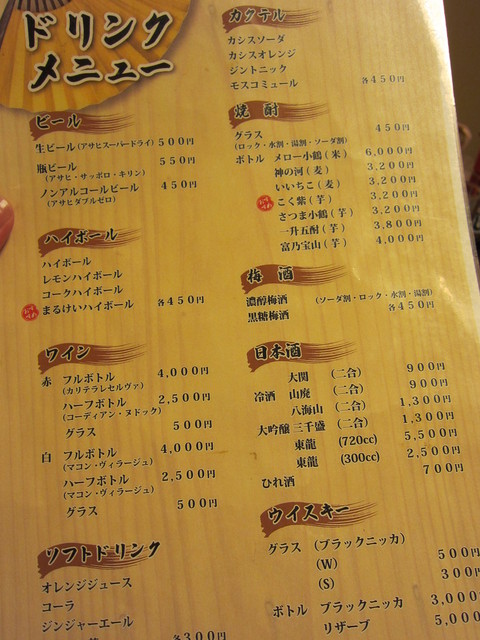 ドリンク
メニュー
ビール
生ビール(アサヒスーパードライ) 500円
瓶ビール 550円
(アサヒ・サッポロ・キリン)
ノンアルコールビール 450円
(アサヒダブルゼロ)
ハイボール
ハイボール
レモンハイボール
コークハイボール
まるけいハイボール 各450円
ワイン
赤 フルボトル 4,000円
(カリテラレセルヴァ)
ハーフボトル 2,500円
(コーディアン・ヌドック)
グラス 500円
白 フルボトル 4,000円
(マコン・ヴィラージュ)
ハーフボトル 2,500円
(マコン・ヴィラージュ)
グラス 500円
ソフトドリンク
オレンジジュース
コーラ
ジンジャーエール
各300円
カクテル
カシスソーダ
カシスオレンジ
ジントニック
モスコミュール 各450円
焼酎
グラス 450円
(ロック・水割・湯割・ソーダ割)
ボトル メロー小鶴(米) 6,000円
神の河(麦) 3,200円
いいちこ(麦) 3,200円
こく紫(芋) 3,200円
さつま小鶴(芋) 3,200円
一升五酎(芋) 3,800円
富乃宝山(芋) 4,000円
梅酒
濃醇梅酒 (ソーダ割・ロック・水割・湯割)
黒糖梅酒 各450円
日本酒
大関 (二合) 900円
冷酒 山廃 (二合) 900円
八海山 (二合) 1,300円
大吟醸 三千盛 (二合) 1,300円
東龍 (720cc) 5,500円
東龍 (300cc) 2,500円
ひれ酒 700円
ウイスキー
グラス (ブラックニッカ)
(W) 500円
(S) 300円
ボトル ブラックニッカ 3,000
リザーブ 5,000